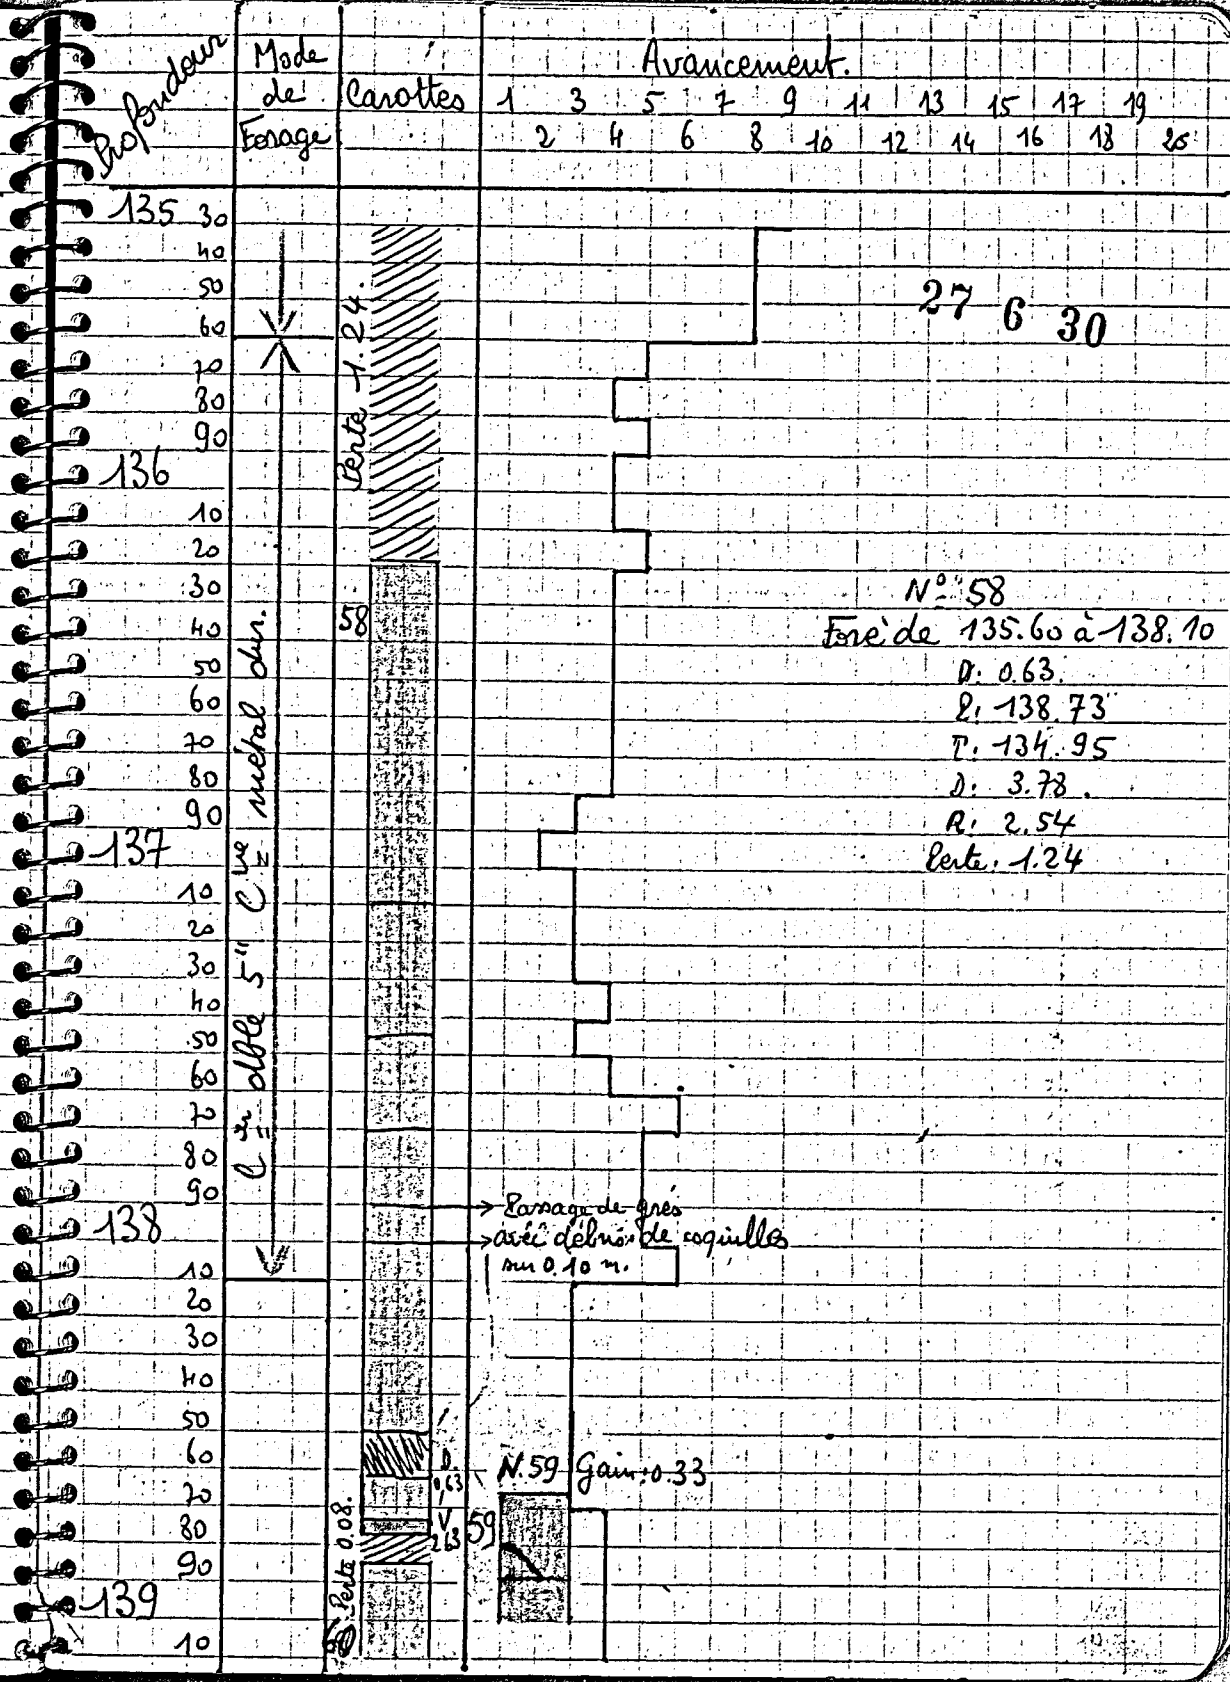 Profondeur
Mode
de
Forage
Carottes
Avancement.
1 3 5 7 9 11 13 15 17 19
2 4 6 8 10 12 14 16 18 20
135 30
40
50
60
70
80
90
136
10
20
30
40
50
60
70
80
90
137
10
20
30
40
50
60
70
80
90
138
10
20
30
40
50
60
70
80
90
139
10
métal dur.
5"
Perte 1.24.
58
27 6 30
N° 58
Foré de 135.60 à 138.10
D: 0.63.
P: 138.73
T: 134.95
D: 3.78.
R: 2.54
Perte: 1.24
Passage de grés
avec débris de coquilles
sur 0.10 m.
N.59 Gain: 0.33
D.
0,63
V
2.63
59
Perte 0.08.